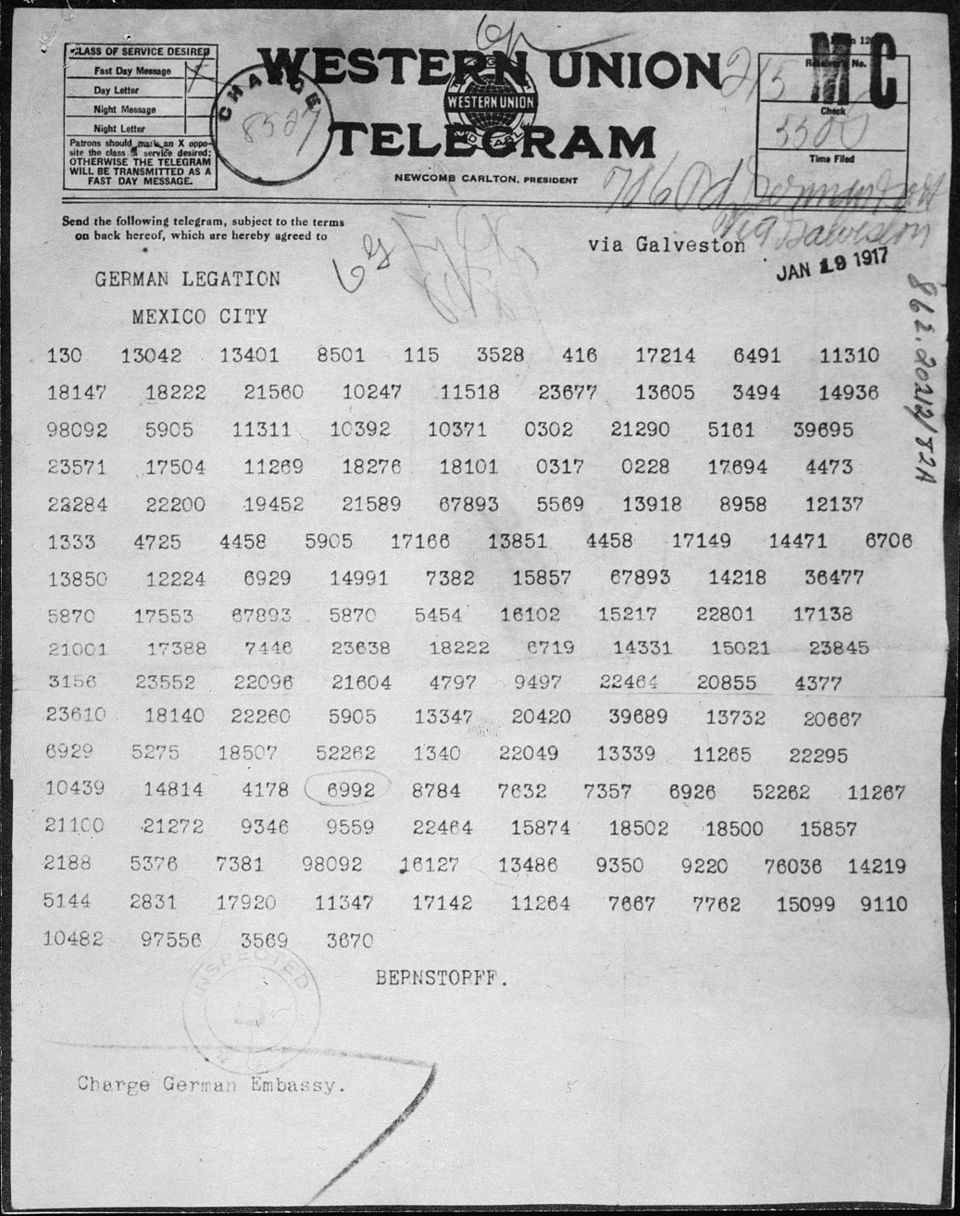 CLASS OF SERVICE DESIRED
Fast Day Message
Day Letter
Night Message
Night Letter
Patrons should mark an X oppo-
site the class of service desired;
OTHERWISE THE TELEGRAM
WILL BE TRANSMITTED AS A
FAST DAY MESSAGE.
CHARGE
WESTERN UNION
WESTERN UNION
TELEGRAM
NEWCOMB CARLTON, PRESIDENT
215
Receiver's No.
MC
Check
Time Filed
Send the following telegram, subject to the terms
on back hereof, which are hereby agreed to
via Galveston
via Galveston
JAN 19 1917
GERMAN LEGATION
MEXICO CITY
130 13042 13401 8501 115 3528 416 17214 6491 11310
18147 18222 21560 10247 11518 23677 13605 3494 14936
98092 5905 11311 10392 10371 0302 21290 5161 39695
23571 17504 11269 18276 18101 0317 0228 17694 4473
22284 22200 19452 21589 67893 5569 13918 8958 12137
1333 4725 4458 5905 17166 13851 4458 17149 14471 6706
13850 12224 6929 14991 7382 15857 67893 14218 36477
5870 17553 67893 5870 5454 16102 15217 22801 17138
21001 17388 7446 23638 18222 6719 14331 15021 23845
3156 23552 22096 21604 4797 9497 22464 20855 4377
23610 18140 22260 5905 13347 20420 39689 13732 20667
6929 5275 18507 52262 1340 22049 13339 11265 22295
10439 14814 4178 6992 8784 7632 7357 6926 52262 11267
21100 21272 9346 9559 22464 15874 18502 18500 15857
2188 5376 7381 98092 16127 13486 9350 9220 76036 14219
5144 2831 17920 11347 17142 11264 7667 7762 15099 9110
10482 97556 3569 3670
BERNSTORFF.
INSPECTED
Charge German Embassy.
862.20212/82A